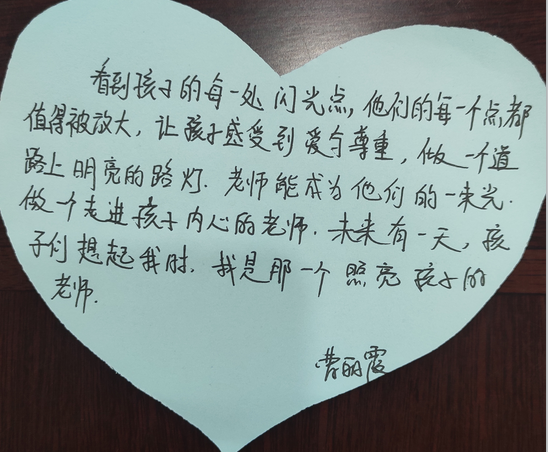 看到孩子的每一处闪光点,他们的每一个点都
值得被放大,让孩子感受到爱与尊重,做一个道
路上明亮的路灯.老师能成为他们的一束光.
做一个走进孩子内心的老师.未来有一天,孩
子们想起我时.我是那一个照亮孩子的
老师.
曹丽霞